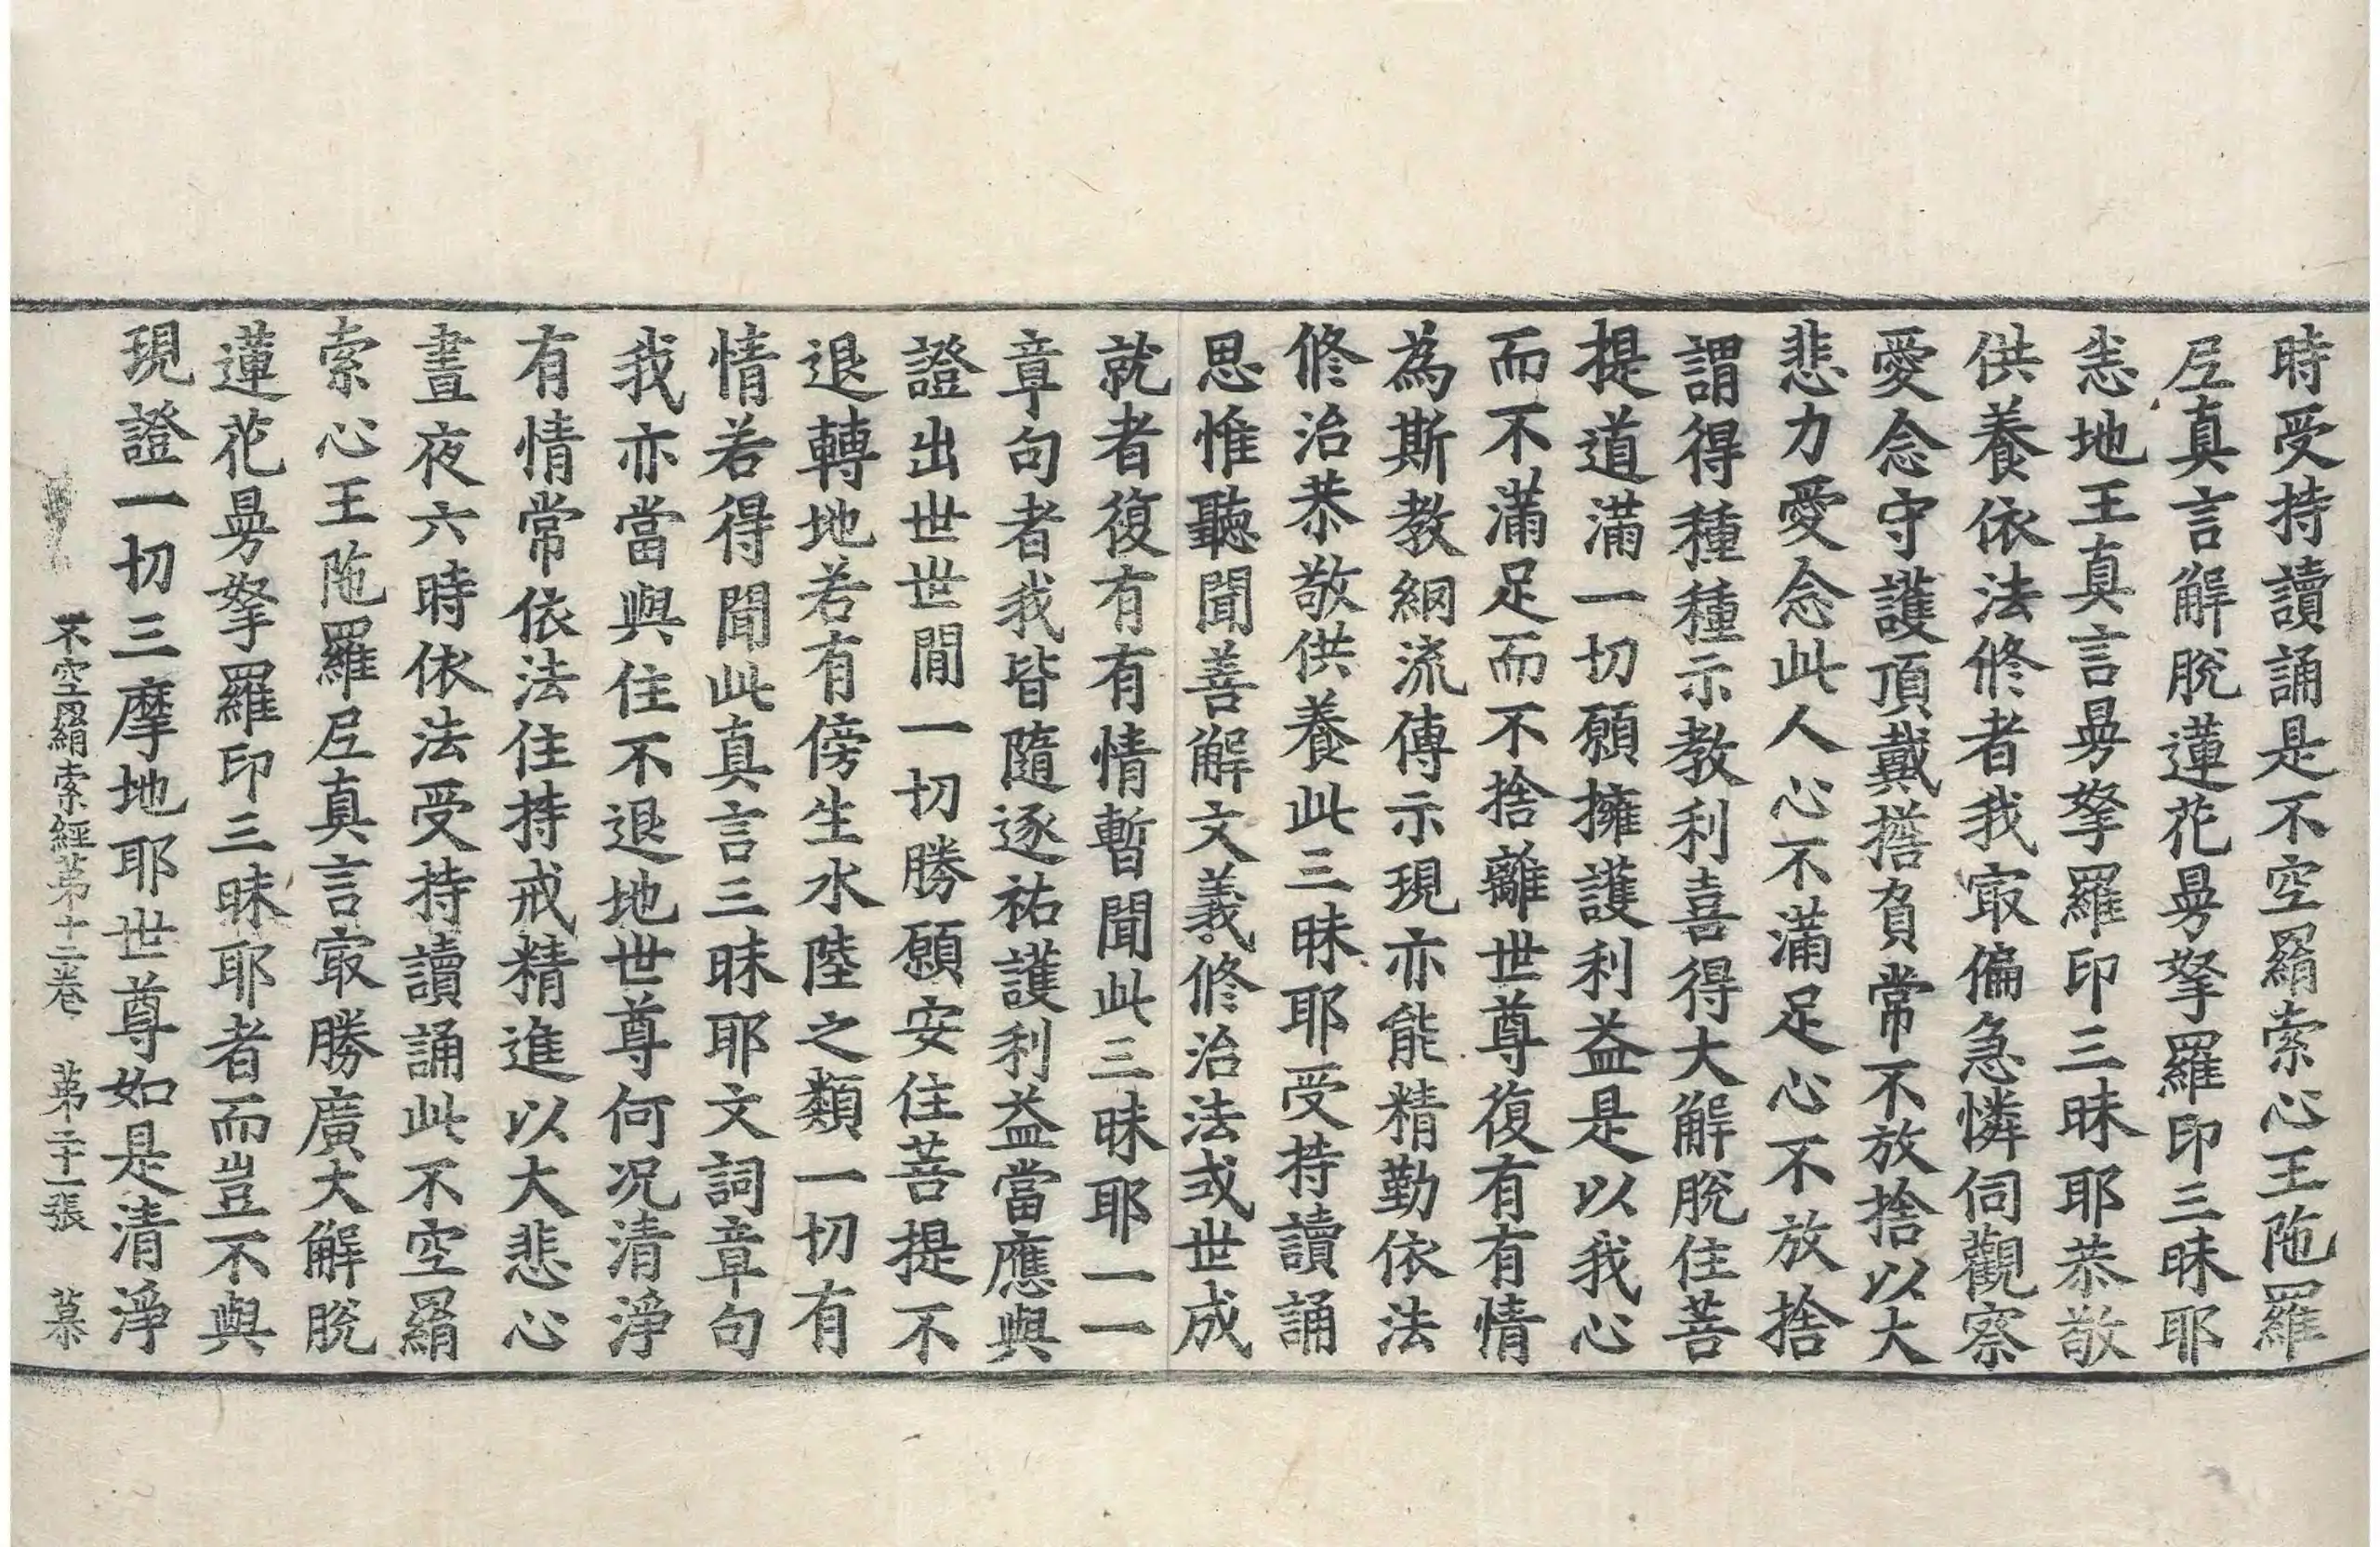 時受持讀誦是不空羂索心王陁羅
𡰱真言解脫蓮花曼拏羅印三昧耶
恙地王真言曼拏羅印三昧耶恭敬
供養依法修者我㝡偏急憐伺觀察
愛念守護頂戴撘負常不放捨以大
悲力愛念此人心不滿足心不放捨
謂得種種示教利喜得大解脫住菩
提道滿一切願擁護利益是以我心
而不滿足而不捨離世尊復有有情
為斯教網流傳示現亦能精勤依法
修治恭敬供養此三昧耶受持讀誦
思惟聽聞善解文義修治法或世成
就者復有有情暫聞此三昧耶一一
章句者我皆隨逐祐護利益當應與
證出世世間一切勝願安住菩提不
退轉地若有傍生水陸之類一切有
情若得聞此真言三昧耶文詞章句
我亦當與住不退地世尊何况清淨
有情常依法住持戒精進以大悲心
晝夜六時依法受持讀誦此不空羂
索心王陁羅𡰱真言㝡勝廣大解脫
蓮花曼拏羅印三昧耶者而豈不與
現證一切三摩地耶世尊如是清淨
不空羂索經第十二卷 第二十一張 慕